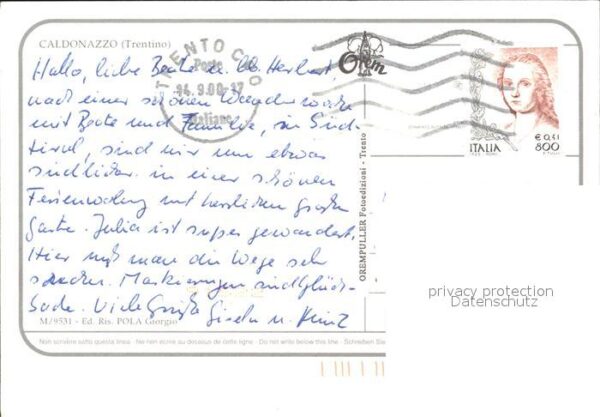 CALDONAZZO (Trentino)
Hallo, liebe Beate u. lb. Herbert,
nach einer schönen Wanderwoche
mit Beate und Familie, in Süd-
tirol, sind wir nun etwas
südlicher in einer schönen
Ferienwohnung mit herrlichem großen
Garten. Julia ist super gewandert.
Hier muß man die Wege sehr
suchen. Markierungen sind Glück-
sache. Viele Grüße Gisela u. Heinz
M/9531 - Ed. Ris. POLA Giorgio
Non scrivere sotto questa linea - Ne rien écrire au dessous de cette ligne - Do not write below this line - Schreiben Sie
TRENTO C.
Poste
14.9.00-17
Italiane
Orem
OREMPULLER Fotoedizioni - Trento
€ 0,41
ITALIA 800
privacy protection
Datenschutz